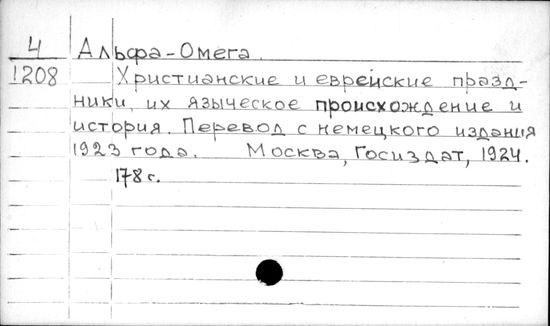 4 Альфа-Омега.
1208 Христианские и еврейские празд-
ники, их языческое происхождение и
история. Перевод с немецкого издания
1923 года. Москва, Госиздат, 1924.
178 с.